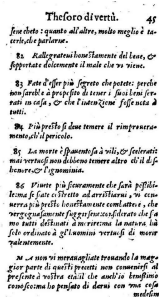 Thesoro di vertù. 45
sene cheto: quanto all'altre, molto meglio è ta-
cerle, che parlarne.
82 Rallegratevi honestamente del bene, &
sopportate dolcemente il male che vi viene.
83 Fate d'esser più segreto che potete: perche
non sarebbe à proposito di tener i suoi beni ser-
rati in casa, & che l'intentione fosse nota à
tutti.
84 Più presto si deve temere il rimprovera-
mento, ch'il pericolo.
85 La morte è spaventosa à vili, & scelerati:
mai vertuosi non debbono temere altro ch'il di-
honore, & l'ignominia.
86 Vivete più sicuramente che sarà possibi-
le: ma se siate costretto ad arrischiarvi, vi oc-
correrà più presto honestamente combattere, che
vergognosamente fuggir senza: che
mo tutti destinati à morire: ma la natura hà
solo ordinato à gl'huomini vertuosi di morir
valentemente.
La non vi meravigliate trovando la mag-
gior parte di questi precetti non convenirsi al
presente à vostra età: che anch'io in questo
conosco: ma ho pensato di darvi con una cosa
medesim